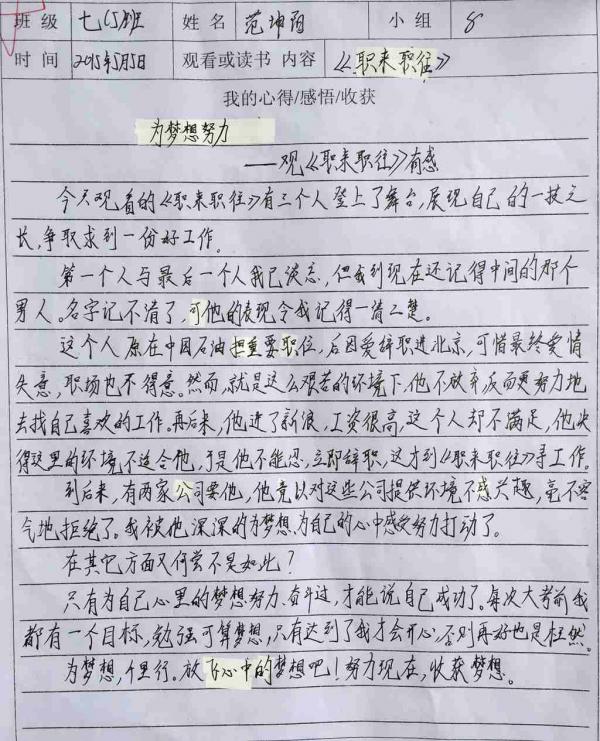 班级 七(5)班 姓名 范坤阳 小组 8
时间 2015年5月5日 观看或读书 内容 《职来职往》
我的心得/感悟/收获
为梦想努力
——观《职来职往》有感
今天观看的《职来职往》有三个人登上了舞台,展现自己的一技之
长,争取求到一份好工作。
第一个人与最后一个人我已淡忘,但我到现在还记得中间的那个
男人。名字记不清了,可他的表现令我记得一清二楚。
这个人原在中国石油担重要职位,后因爱辞职进北京,可惜最终爱情
失意,职场也不得意。然而,就是这么艰苦的环境下,他不放弃反而更努力地
去找自己喜欢的工作。再后来,他进了新浪,工资很高,这个人却不满足,他决
得这里的环境不适合他,于是他不能忍,立即辞职,这才到《职来职往》寻工作。
到后来,有两家公司要他,他竟以对这些公司提供环境不感兴趣,毫不客
气地拒绝了。我被他深深的为梦想,为自己的心中感受努力打动了。
在其它方面又何尝不是如此?
只有为自己心里的梦想努力、奋斗过,才能说自己成功了。每次大考前我
都有一个目标,勉强可算梦想,只有达到了我才会开心,否则再好也是枉然。
为梦想,千里行。放飞心中的梦想吧!努力现在,收获梦想。